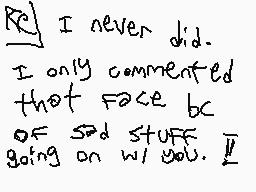 RE] I never did.
I only commented
that face bc
of sad stuff
going on w/ you. !!